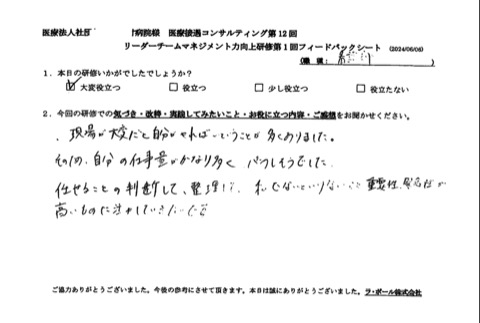 医療法人社団 病院様 医療接遇コンサルティング第12回
リーダーチームマネジメント力向上研修第1回フィードバックシート (2024/06/06)
(職種: )
1. 本日の研修いかがでしたでしょうか?
☑ 大変役立つ □ 役立つ □ 少し役立つ □ 役立たない
2. 今回の研修での気づき・改善・実践してみたいこと・お役に立つ内容・ご感想をお聞かせください。
、現場が大変だと自分がやればいいということが多くありました。
そのため、自分の仕事量がかなり多くパンクしそうでした。
任せることの判断して、整理し、私でないといけないこと 重要性、緊急性が
高いものに注力していきたいです
ご協力ありがとうございました。今後の参考にさせて頂きます。本日は誠にありがとうございました。ラ・ポール株式会社